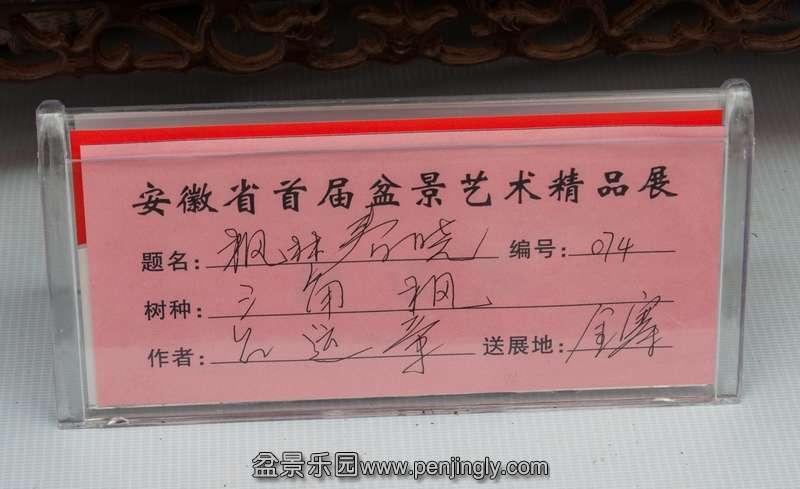 安徽省首届盆景艺术精品展
题名：枫林春晓 编号：074
树种：三角枫
作者：运章 送展地：金寨
盆景乐园www.penjingly.com